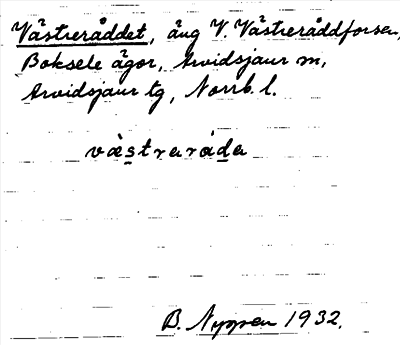 Västreråddet, äng V. Västreråddforsen,
Boksele ägor, Arvidsjaur sn,
Arvidsjaur tg, Norrb. l.
västraråda
B. Nygren 1932.